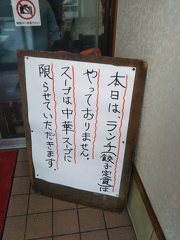 本日は、ランチ餃子定食は
やっておりません。
スープは中華スープに
限らせていただきます。